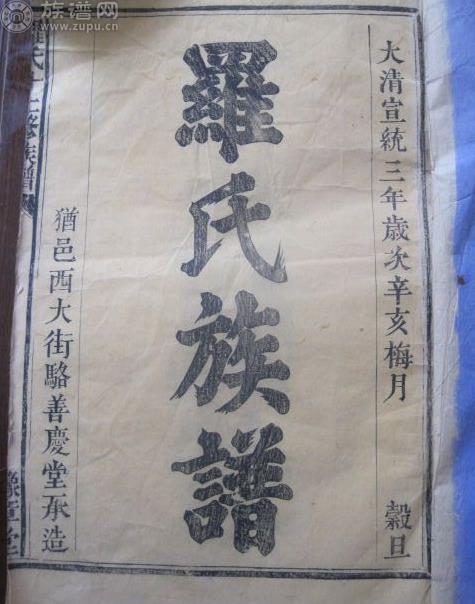 大清宣統三年歲次辛亥梅月 穀旦
羅氏族譜
猶邑西大街駱善慶堂承造
族譜
族谱网
www.zupu.cn